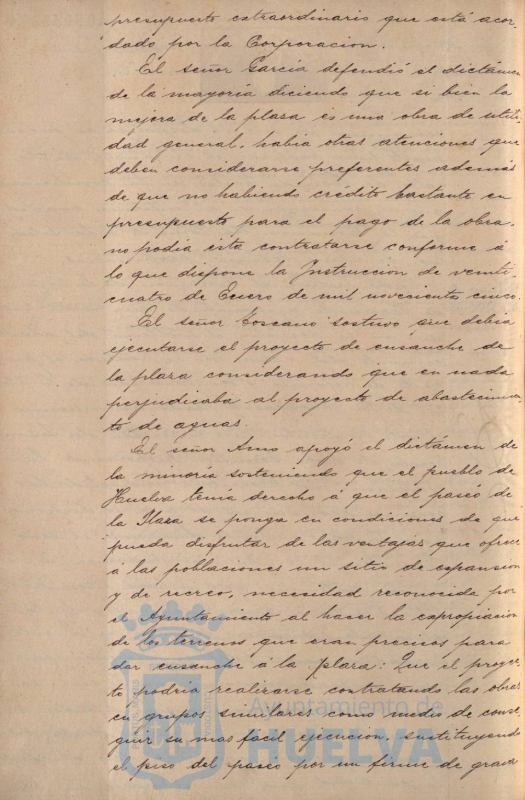 presupuesto extraordinario que está acor-
dado por la Corporacion.
El señor García defendió el dictámen
de la mayoría diciendo que si bien la
mejora de la plasa es una obra de utili-
dad general, habia otras atenciones que
deben considerarse preferentes además
de que no habiendo crédito bastante en
presupuesto para el pago de la obra,
no podia ésta contratarse conforme á
lo que dispone la Instruccion de veinti-
cuatro de Enero de mil novecientos cinco.
El señor Toscano sostuvo que debia
ejecutarse el proyecto de ensanche de
la plaza considerando que en nada
perjudicaba al proyecto de abastecimien-
to de aguas.
El señor Amo apoyó el dictámen de
la minoría sosteniendo que el pueblo de
Huelva tenia derecho á que el paseo de
la Plaza se ponga en condiciones de que
pueda disfrutar de las ventajas que ofrece
á las poblaciones un sitio de expansion
y de recreo, necesidad reconocida por
el Ayuntamiento al hacer la expropiacion
de los terrenos que eran precisos para
dar ensanche á la plaza: Que el proyec-
to podria realizarse contratando las obras
en grupos similares como medio de conse-
guir su mas facil ejecucion, sustituyendo
el piso del paseo por un firme de grava
Ayuntamiento de
HUELVA